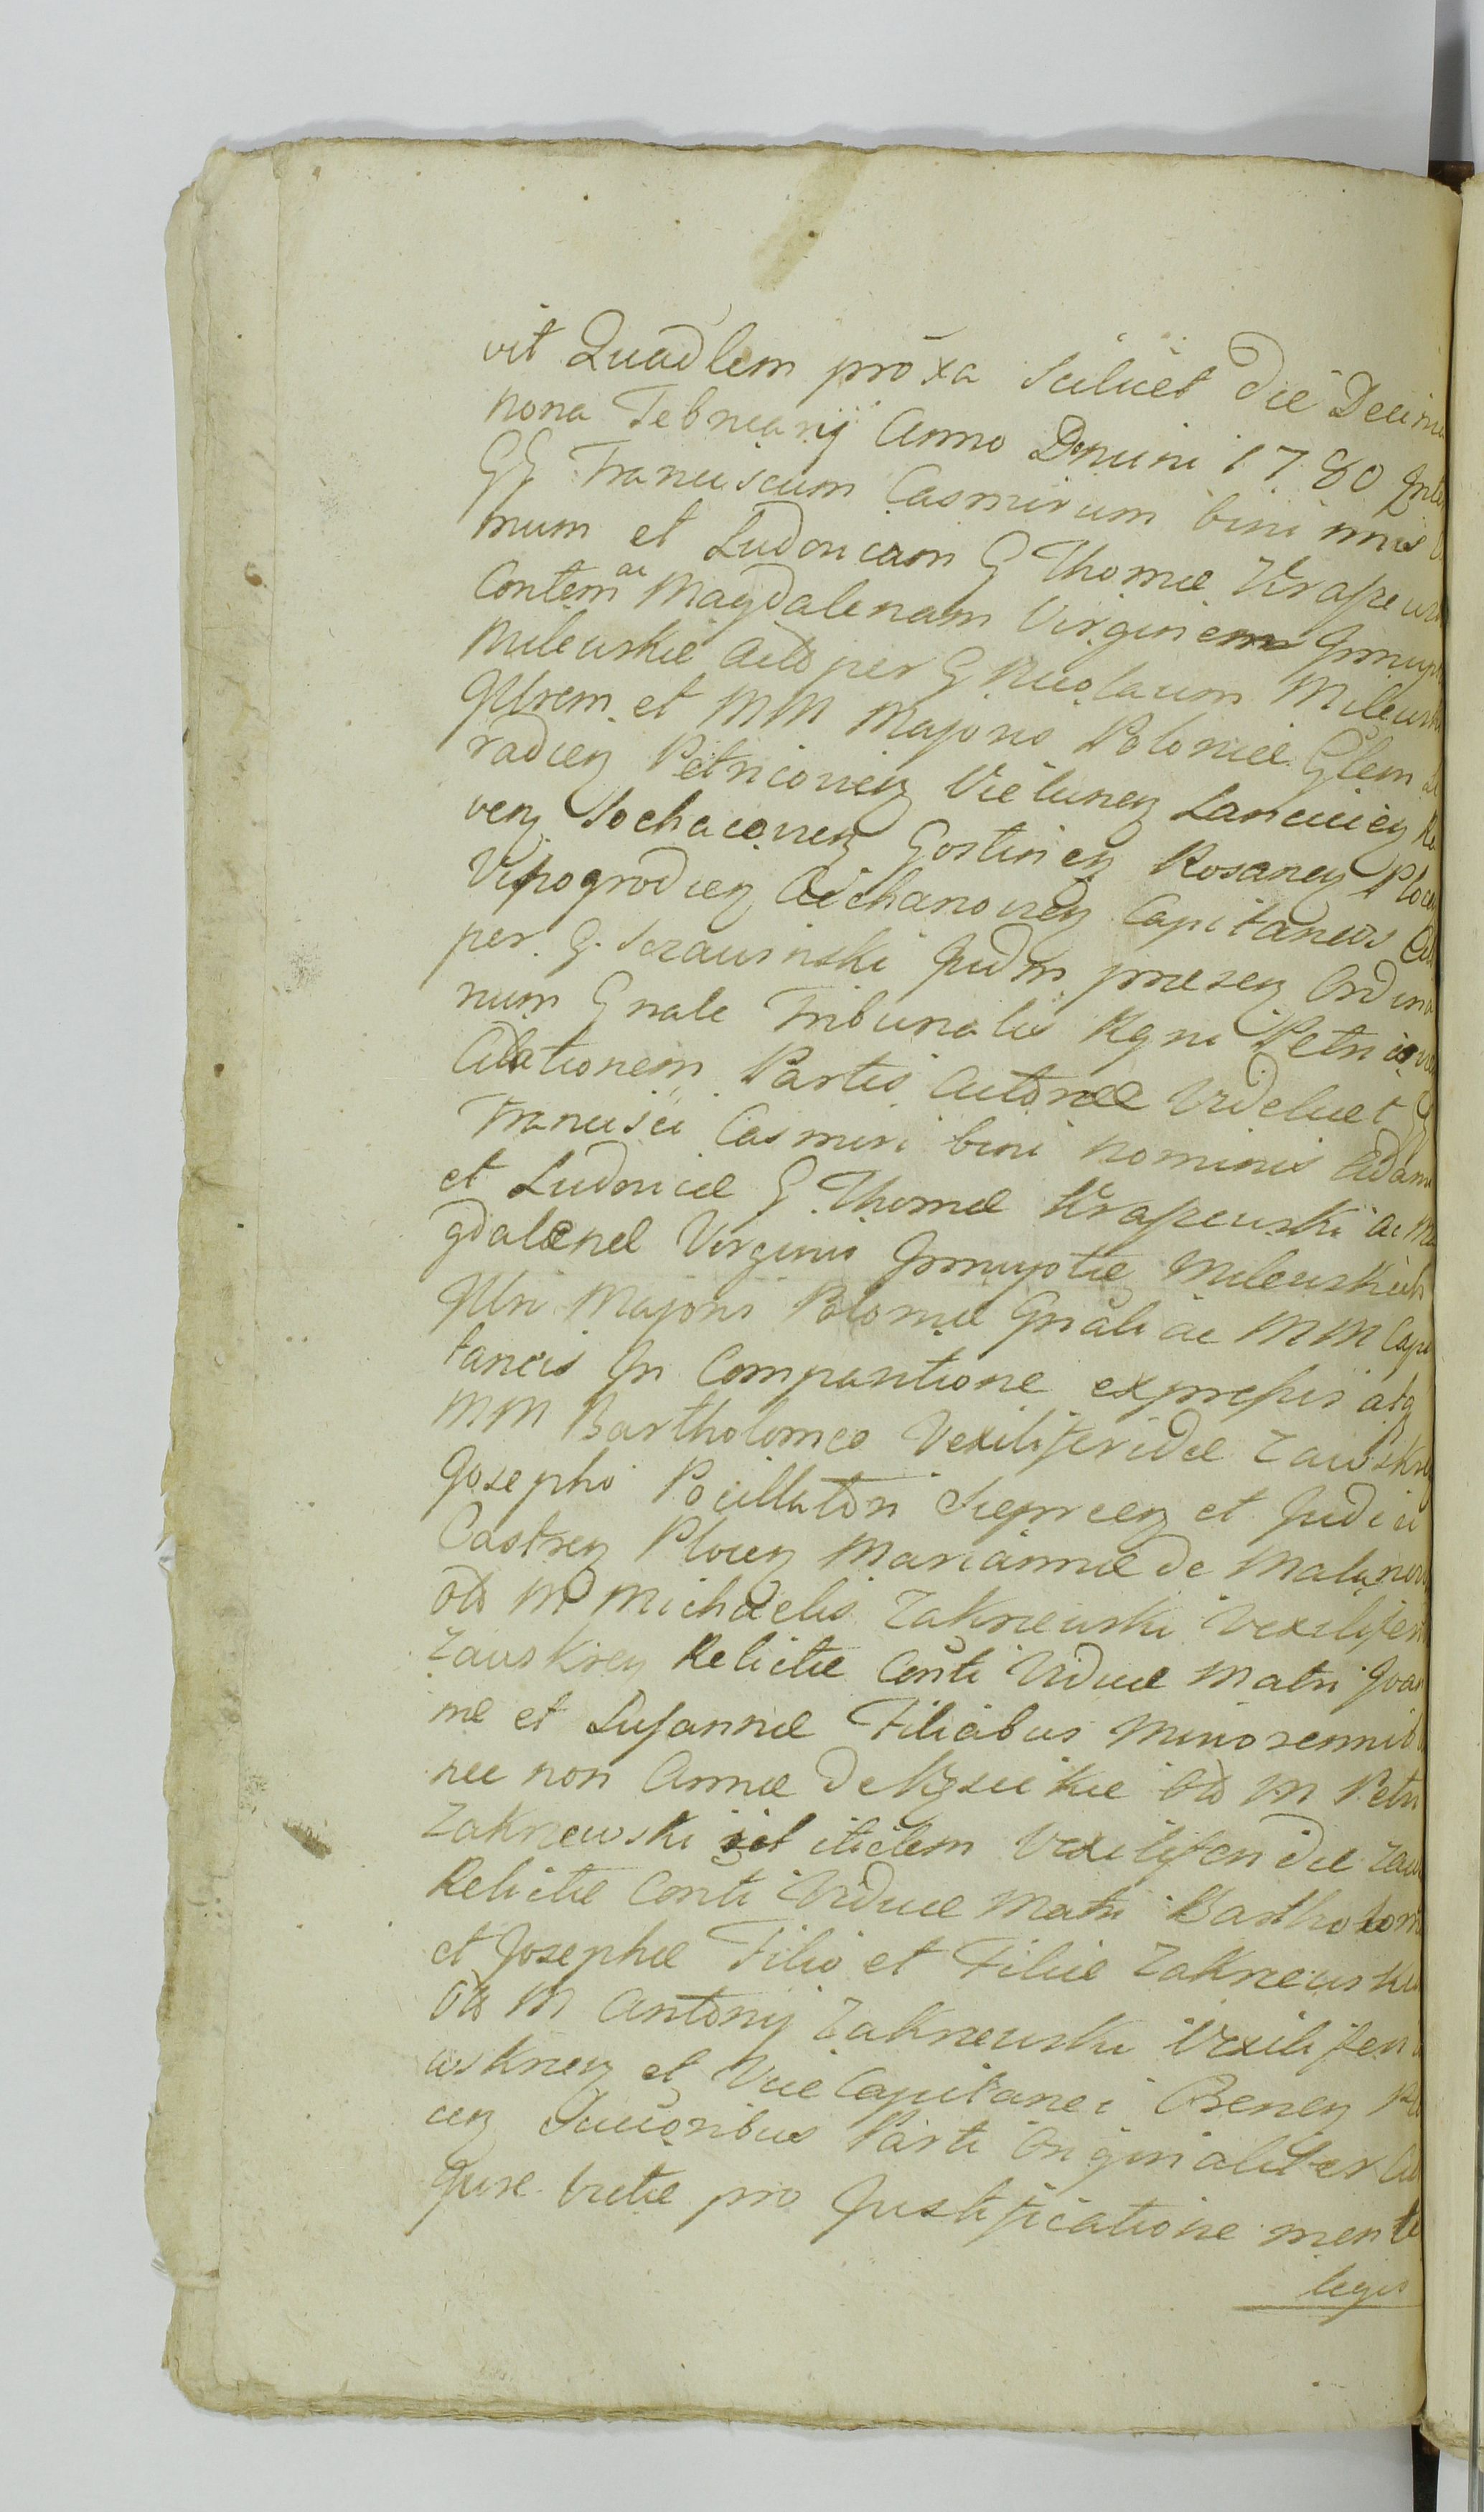 vit Quadlem proxa Scilicet die Decima
nona Februarij Anno Domini 1780 Inter
GG Franciscum Casmirum bini nnis
mum et Ludovicam G Thomæ Krajewski
Contem ac Magdalenam Virginem Innupt
Milewskie Acto per G Nicolaum Milewski
Illrem et MM Majoris Poloniæ Gnlem
radien Petricovien Vielunen Lancicien
ven Sochacovien Gostinen Rosanen Ploce
Visogrodien Ciechanovien Capitaneos
per G. Szrawinski Judm præsen Ordina
num Gnale Tribunalis Regni Petricovien
Citationem Partis Actoreæ Videlicet
Francisci Casmiri bini nominis Adam
et Ludovicæ G Thomæ Krajewski ac Ma
gdalenæ Virginis Innuptæ Milewskich
Illri Majoris Poloniæ Gnali ac MM Capi
taneis In Comparitione expressis atq
MM Bartholomeo Vexiliferidæ Zawskren
Josepho Pocillatori Sieprcen et Judici
Castren Plocen Mariannæ de
olo M Michaelis Zakrzewski Vexiliferi
Zawskren Relictæ Conti Viduæ Matri Joan
næ et Susannæ Filiabus Minorennib
nec non Annæ de olo M Petri
Zakrzewski itidem Vexiliferidæ Zaw
Relictæ Conti Viduæ Matri Bartholom
et Josephæ Filio et Filiæ Zakrzewski
olo M Antonij Zakrzewski Vexiliferi
wskren et Vice Capitanei
cen Succoribus Parti Originaliter
quæ pro Justificatione mente
legis